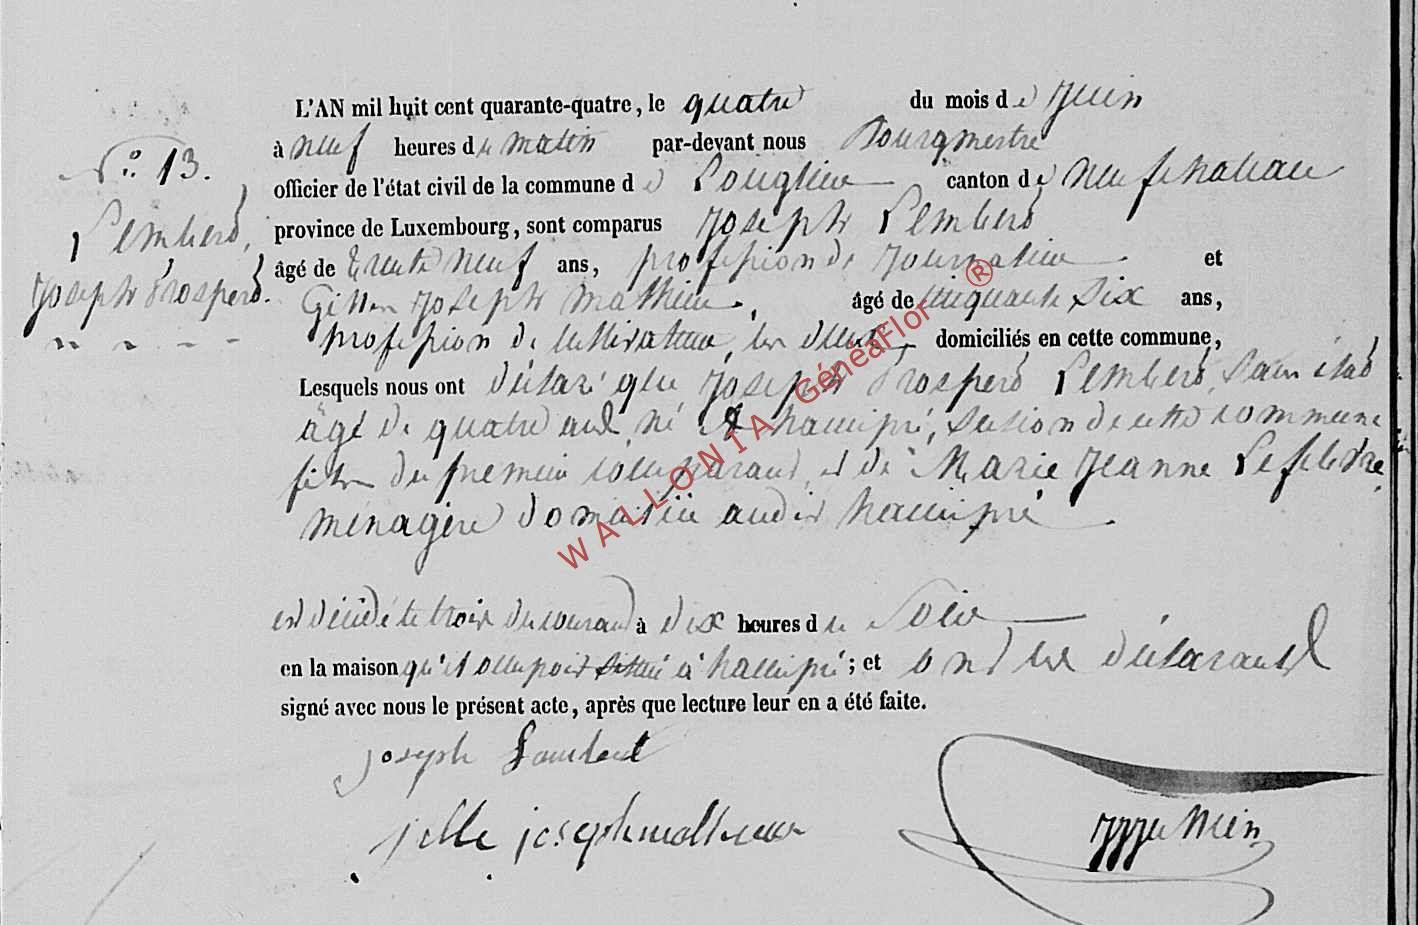 L'AN mil huit cent quarante-quatre, le quatre du mois de Juin
à neuf heures du matin par-devant nous Bourgmestre
officier de l'état civil de la commune de Longlier canton de Neufchateau
N.° 13.
province de Luxembourg, sont comparus Joseph Lembert
Lembert,
âgé de trente neuf ans, profession de Journalier et
Joseph Prosper.
Joseph Mathieu, âgé de cinquante six ans,
profession de cultivateur, les deux domiciliés en cette commune,
Lesquels nous ont déclaré que Joseph Prosper Lembert, sans état
âgé de quatre ans, né à hamipré, section de cette commune
fils du premier comparant, et de Marie Jeanne Lefebvre
ménagère domiciliée audit hamipré
est décédé le trois du courant à dix heures du Soir
en la maison qu'il occupoit située à hamipré; et ont les déclarants
signé avec nous le présent acte, après que lecture leur en a été faite.
joseph Lambert
joseph mathieu
WALLONIA GénéaFlor ®